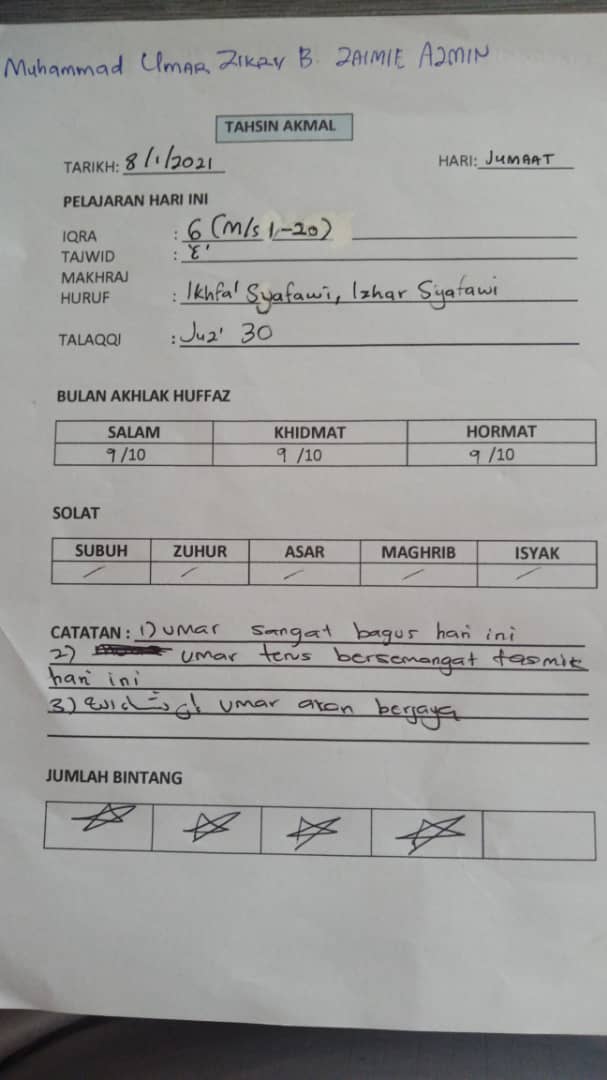 Muhammad Umar Zikry B. ZAIMIE AZMIN
TAHSIN AKMAL
TARIKH: 8/1/2021 HARI: JUMAAT
PELAJARAN HARI INI
IQRA : 6 (M/s 1-20)
TAJWID : 'ع'
MAKHRAJ
HURUF : Ikhfa' Syafawi, Izhar Syafawi
TALAQQI : Juz' 30
BULAN AKHLAK HUFFAZ
SALAM KHIDMAT HORMAT
9/10 9/10 9/10
SOLAT
SUBUH ZUHUR ASAR MAGHRIB ISYAK
/ / / / /
CATATAN : 1) umar sangat bagus hari ini
2) umar terus bersemangat tasmik
hari ini
3) إن شاء الله umar akan berjaya
JUMLAH BINTANG